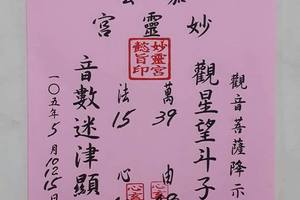 妙靈宮
觀音菩薩降示
觀星望斗子
萬 39 由
妙靈宮
懿旨印
法 15 心
音數迷津顯
一〇五年5月10.15日